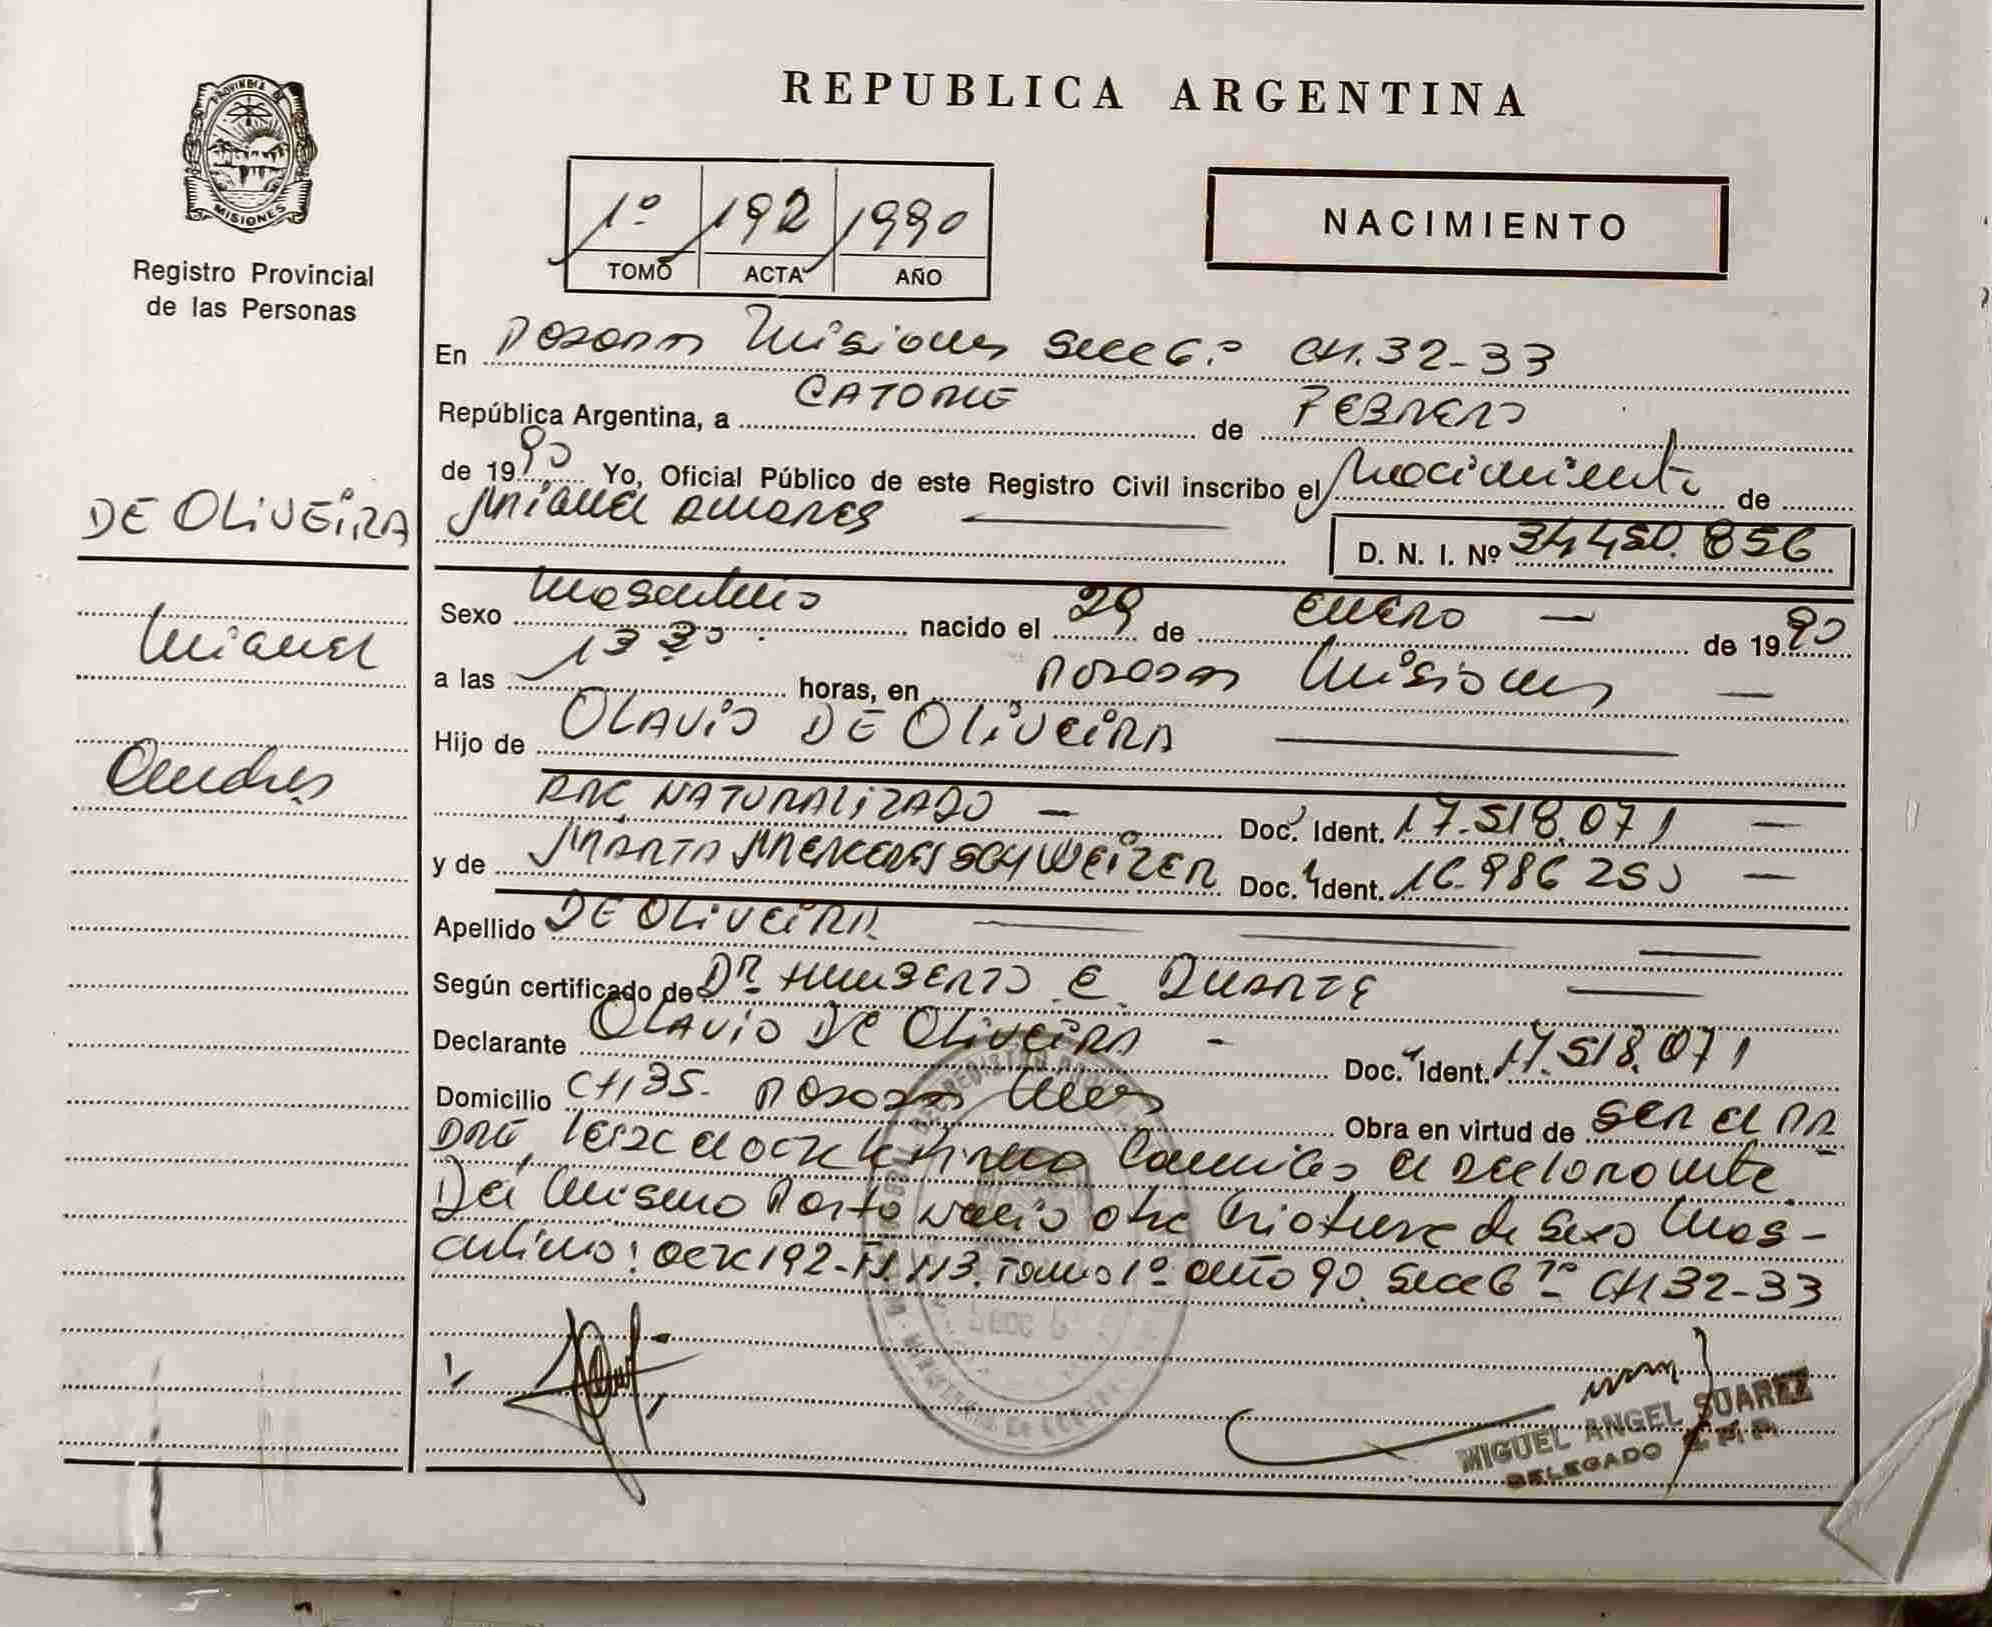 PROVINCIA DE
MISIONES
Registro Provincial
de las Personas
REPUBLICA ARGENTINA
1º 192 1990
TOMO ACTA AÑO
NACIMIENTO
En Posadas Misiones Secc 6.º CH. 32-33
República Argentina, a CATORCE de FEBRERO
de 1990 Yo, Oficial Público de este Registro Civil inscribo el Nacimiento de
DE OLIVEIRA
Miguel Andres
D. N. I. Nº 34.450.856
Sexo Masculino nacido el 29 de ENERO — de 1990
Miguel
a las 13 30 horas, en Posadas Misiones —
Hijo de OLAVIO DE OLIVEIRA
Andres
ARG NATURALIZADO — Doc. Ident. 17.518.071 —
y de MARTA MERCEDES SCHWEIZER Doc. Ident. 16.986 250 —
Apellido DE OLIVEIRA
Según certificado de DR HUMBERTO E. DUARTE
Declarante OLAVIO DE OLIVEIRA - Doc. Ident. 17.518.071
Domicilio CH 35. Posadas Mnes Obra en virtud de SER EL PA
DRE, el acta firma el declarante.
Del mismo Parto nacio otra Criatura de Sexo Mas-
culino: acta 192-Fº 113. Tomo 1º año 90. Secc 6 CH 32-33
MIGUEL ANGEL SUAREZ
DELEGADO R.P.P.